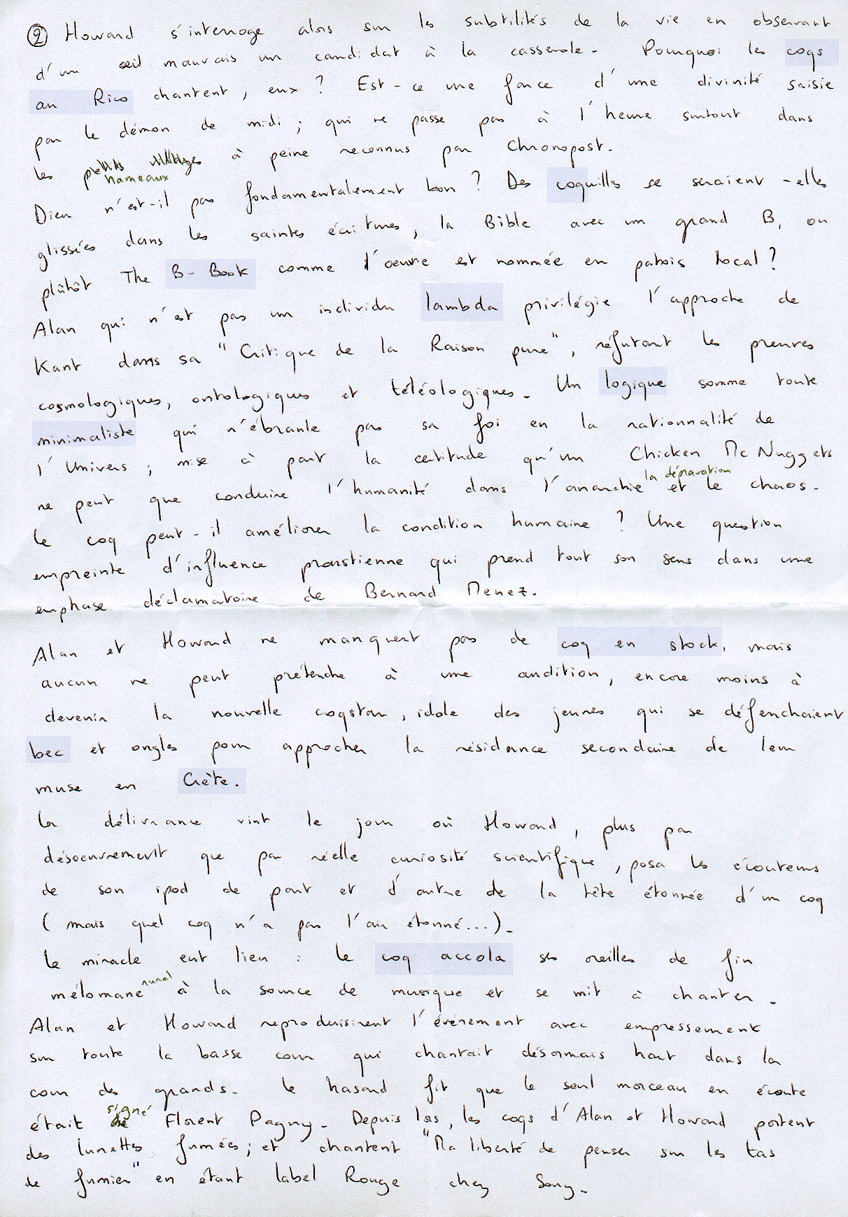 ② Howard s'interroge alors sur les subtilités de la vie en observant
d'un œil mauvais un candidat à la casserole. Pourquoi les coqs
au Rico chantent, eux ? Est-ce une farce d'une divinité saisie
par le démon de midi ; qui ne passe pas à l'heure surtout dans
les petits hameaux à peine reconnus par Chronopost.
Dieu n'est-il pas fondamentalement bon ? Des coquilles se seraient-elles
glissées dans les saintes écritures, la Bible avec un grand B, ou
plûtôt The B-Book comme l'œuvre est nommée en patois local ?
Alan qui n'est pas un individu lambda privilégie l'approche de
Kant dans sa "Critique de la Raison pure", réfutant les preuves
cosmologiques, ontologiques et téléologiques. Un logique somme toute
minimaliste qui n'ébranle pas sa foi en la rationnalité de
l'Univers ; mise à part la certitude qu'un Chicken Mc Nuggets
ne peut que conduire l'humanité dans l'anarchie la dépravation et le chaos.
Le coq peut-il améliorer la condition humaine ? Une question
empreinte d'influence proustienne qui prend tout son sens dans une
emphase déclamatoire de Bernard Menez.
Alan et Howard ne manquent pas de coq en stock, mais
aucun ne peut prétendre à une audition, encore moins à
devenir la nouvelle coqstar, idole des jeunes qui se défenchaient
bec et ongles pour approcher la résidance secondaire de leur
muse en Crète.
La délivrance vint le jour où Howard, plus par
désoeuvrement que par réelle curiosité scientifique, posa les écouteurs
de son ipod de part et d'autre de la tête étonnée d'un coq
(mais quel coq n'a pas l'air étonné...).
Le miracle eut lieu : le coq accola ses oreilles de fin
mélomane rural à la source de musique et se mit à chanter.
Alan et Howard reproduisirent l'événement avec empressement
sur toute la basse cour qui chantait désormais haut dans la
cour des grands. Le hasard fit que le seul morceau en écoute
était signé Florent Pagny. Depuis lors, les coqs d'Alan et Howard portent
des lunettes fumées ; et chantent "Ma liberté de penser sur les tas
de fumier" en étant label Rouge chez Sony.